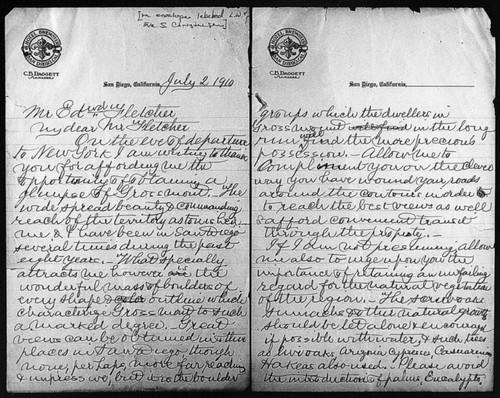 [in envelope labeled
HOTEL BREWSTER
SAN DIEGO, CAL.
C.B. DAGGETT
MANAGER
San Diego, California, July 2 1910
Mr Ed Fletcher
My dear Mr Fletcher
On the eve of departure
to New York I am writing to thank
you for affording me the
opportunity of obtaining a
glimpse of Grossmont. The
wide spread beauty & commanding
reach of the territory astonished
me & I have been in San Diego
several times during the past
eight years. — What specially
attracts me however is the
wonderful mass of boulders of
every shape & color outline which
characterize Grossmont to such
a marked degree. Great
views can be obtained in other
places in San Diego, though
none, perhaps, more far reaching
& impressive, but it is the boulder
HOTEL BREWSTER
SAN DIEGO, CAL.
C.B. DAGGETT
MANAGER
San Diego, California,
groups which the dwellers in
Grossmont will find in the long
run the more precious
possession. — Allow me to
compliment you on the clever
way you have wound your roads
around the contours in order
to reach the best views as well
afford convenient transit
through the property. —
If I am not presuming allow
me also to urge upon you the
importance of retaining an unfailing
regard for the natural vegetation
of the region. — The scrub oaks
sumachs & other natural growth
should be let alone & encouraged
if possible with water, & such trees
as live oaks, Arizona Cypress, Casuarinas
Hakeas also used. Please avoid
the introduction of palms Eucalypts,